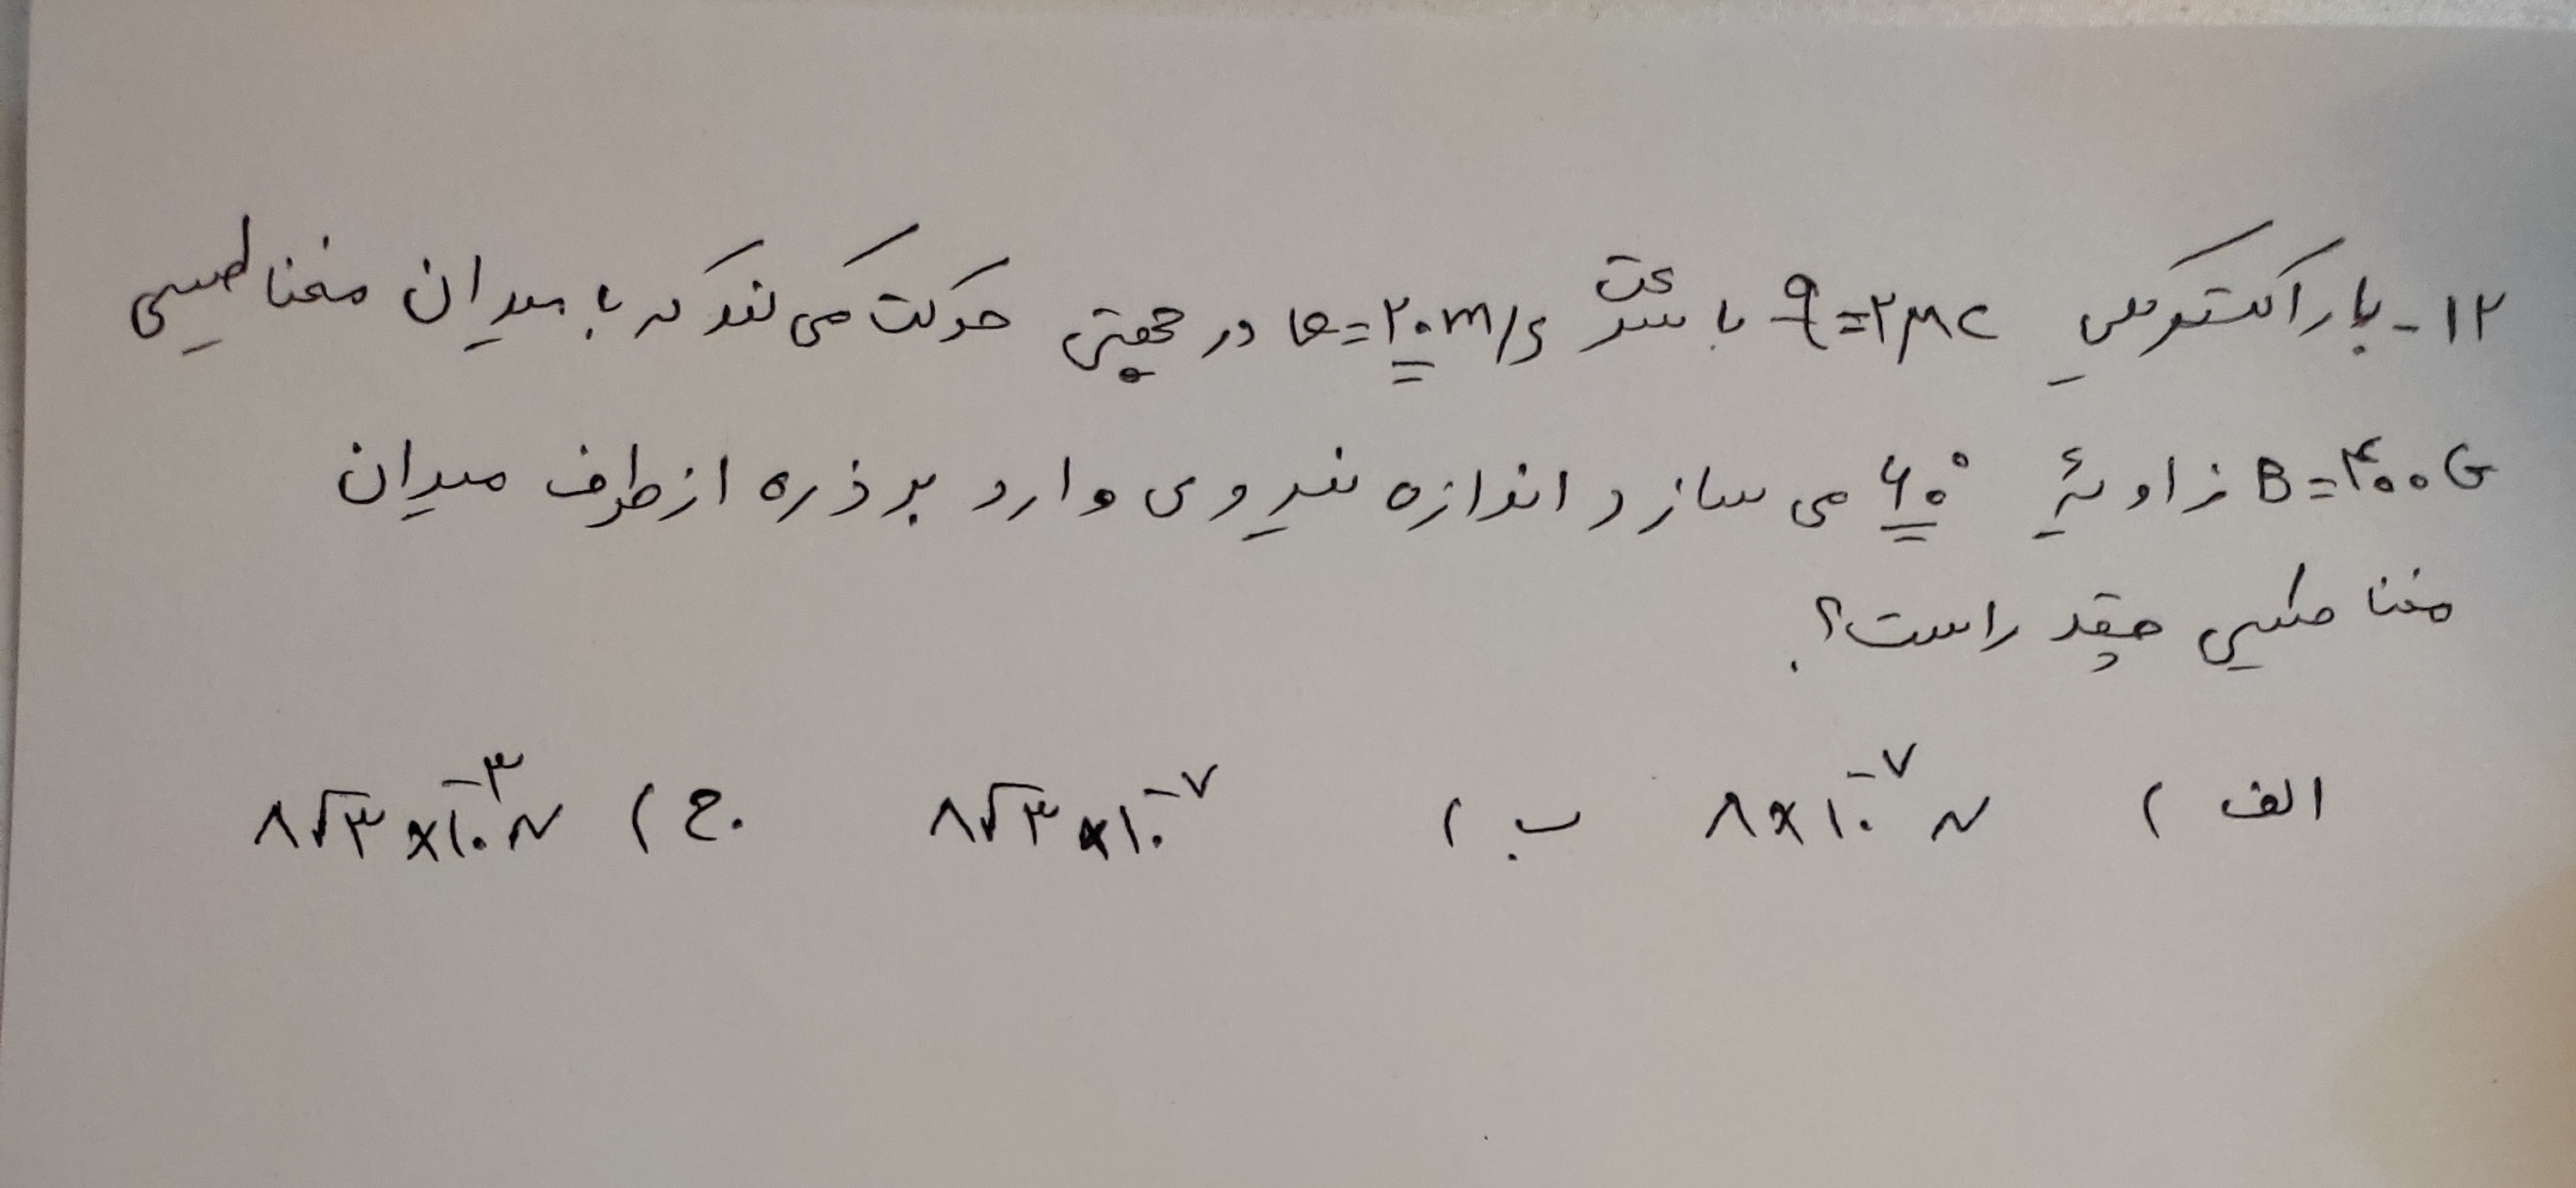 ۱۲- بار الکتریکی q=۲μC با سرعت v=۲۰m/s در جهتی حرکت می کند که با میدان مغناطیسی
B=۴۰۰G زاویهٔ ۶۰° می سازد اندازه نیروی وارد بر ذره از طرف میدان
مغناطیسی چقدر است؟
الف) ۸×۱۰⁻⁷ N ب) ۸√۳×۱۰⁻⁷ ج) ۸√۳×۱۰⁻³ N